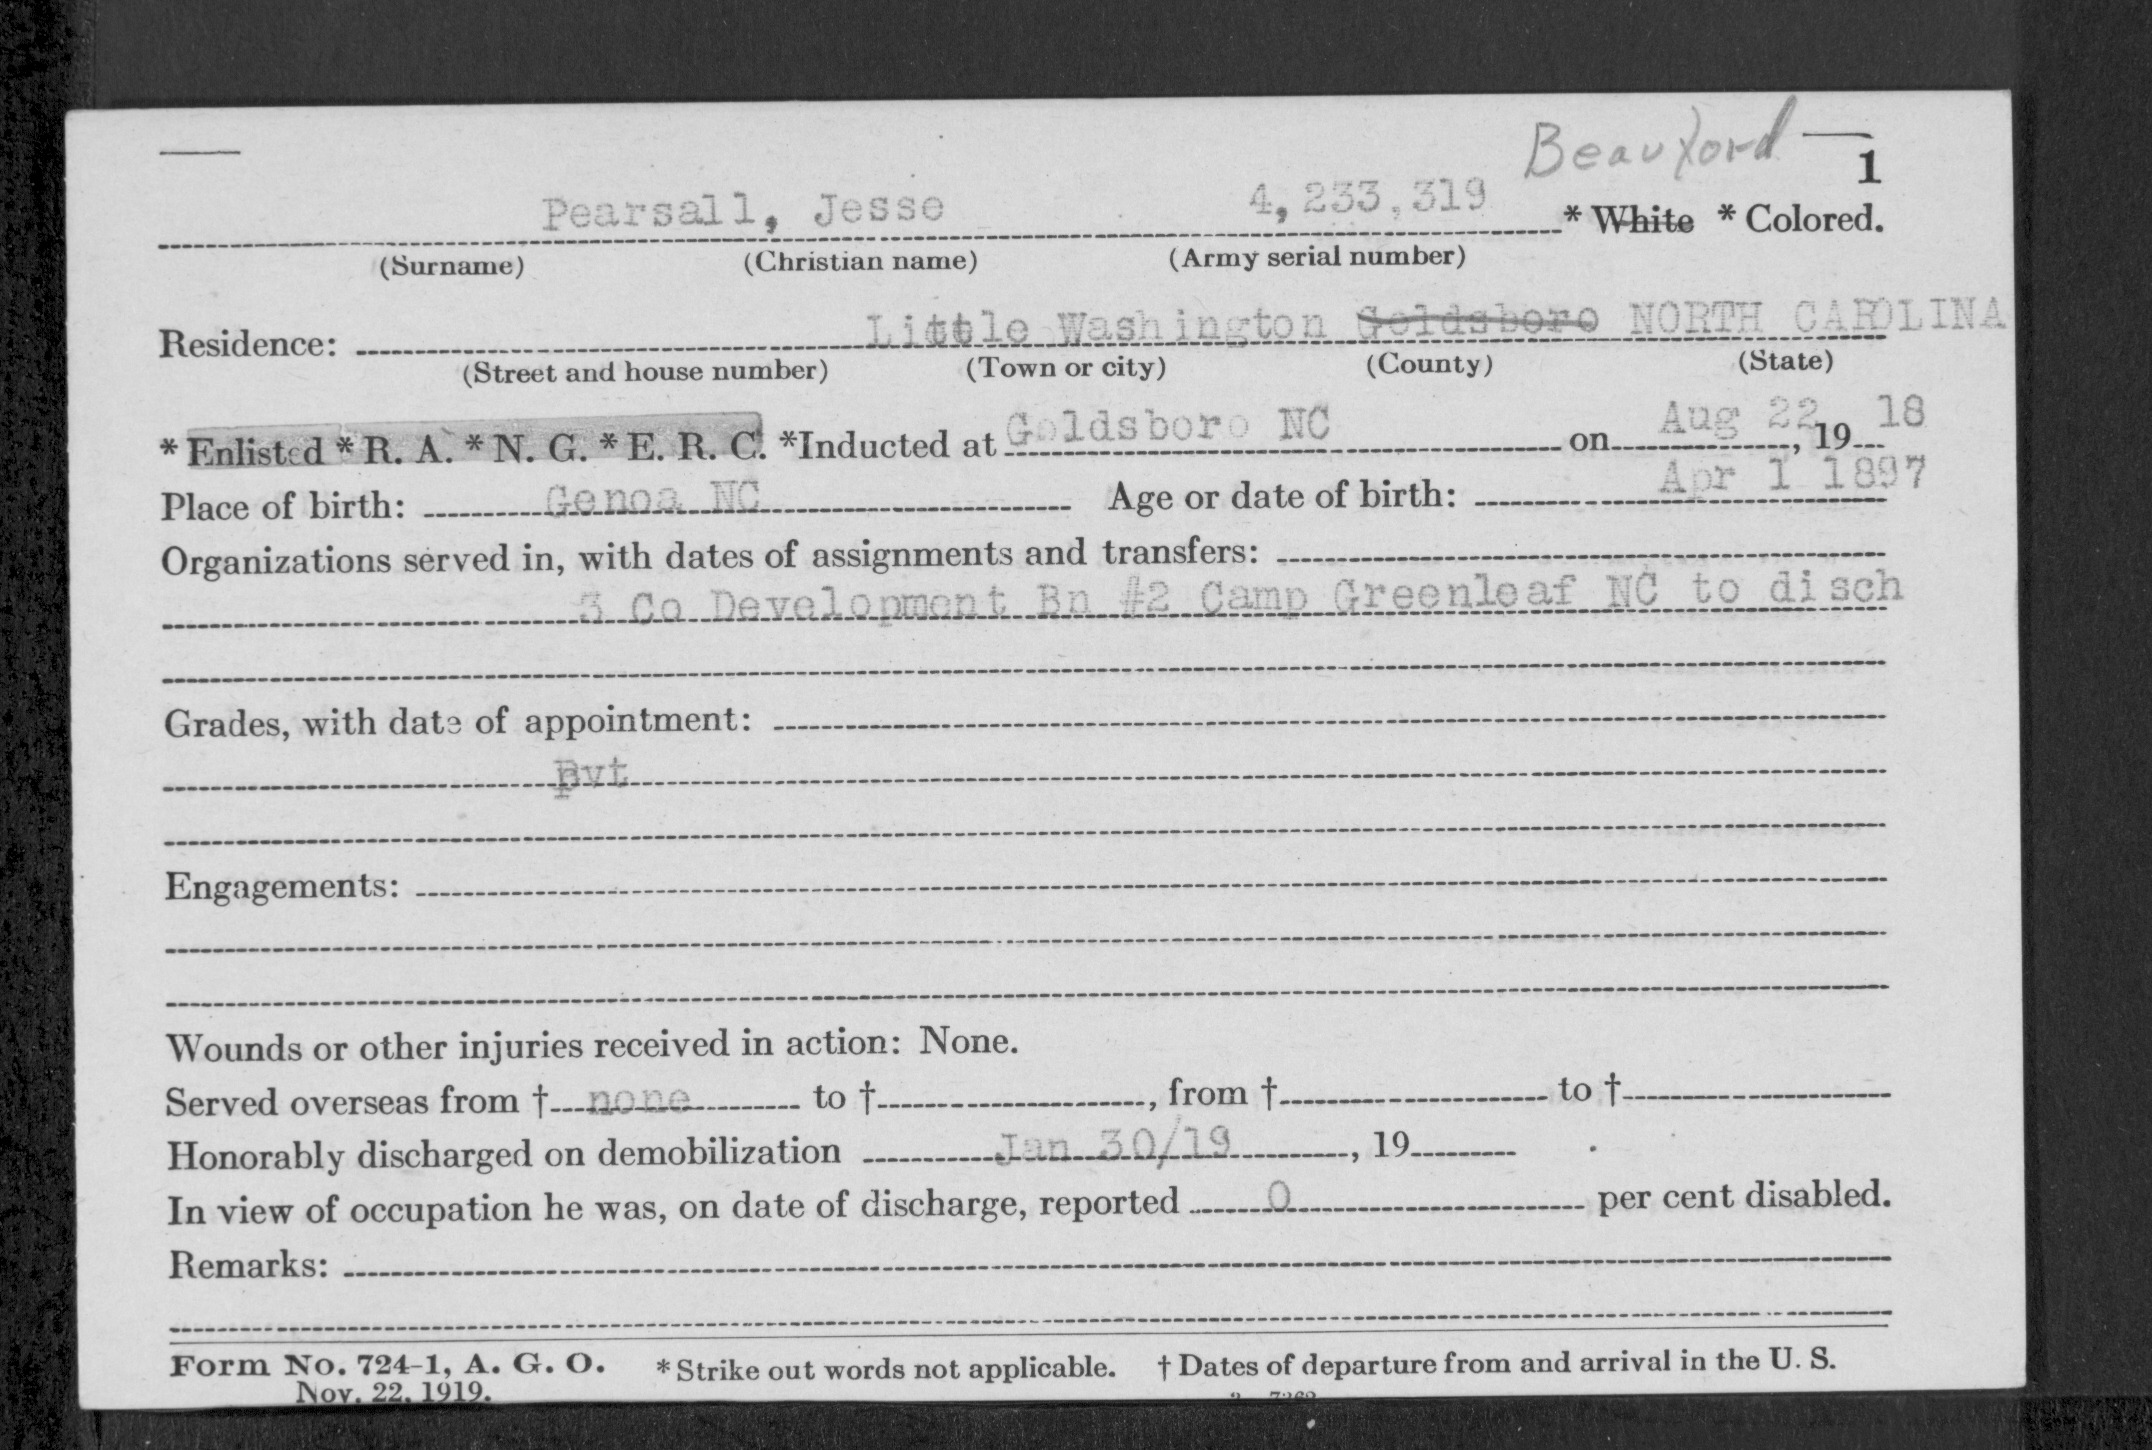 Beauford
1
Pearsall, Jesse 4,233,319 * White * Colored.
(Surname) (Christian name) (Army serial number)
Residence: Little Washington Goldsboro NORTH CAROLINA
(Street and house number) (Town or city) (County) (State)
* Enlisted * R. A. * N. G. * E. R. C. *Inducted at Goldsboro NC on Aug 22, 19 18
Place of birth: Genoa NC Age or date of birth: Apr 1 1897
Organizations served in, with dates of assignments and transfers:
3 Co Development Bn #2 Camp Greenleaf NC to disch
Grades, with date of appointment:
Pvt
Engagements:
Wounds or other injuries received in action: None.
Served overseas from † none to †, from † to †
Honorably discharged on demobilization Jan 30/19, 19
In view of occupation he was, on date of discharge, reported 0 per cent disabled.
Remarks:
Form No. 724-1, A. G. O. * Strike out words not applicable. † Dates of departure from and arrival in the U. S.
Nov. 22, 1919.